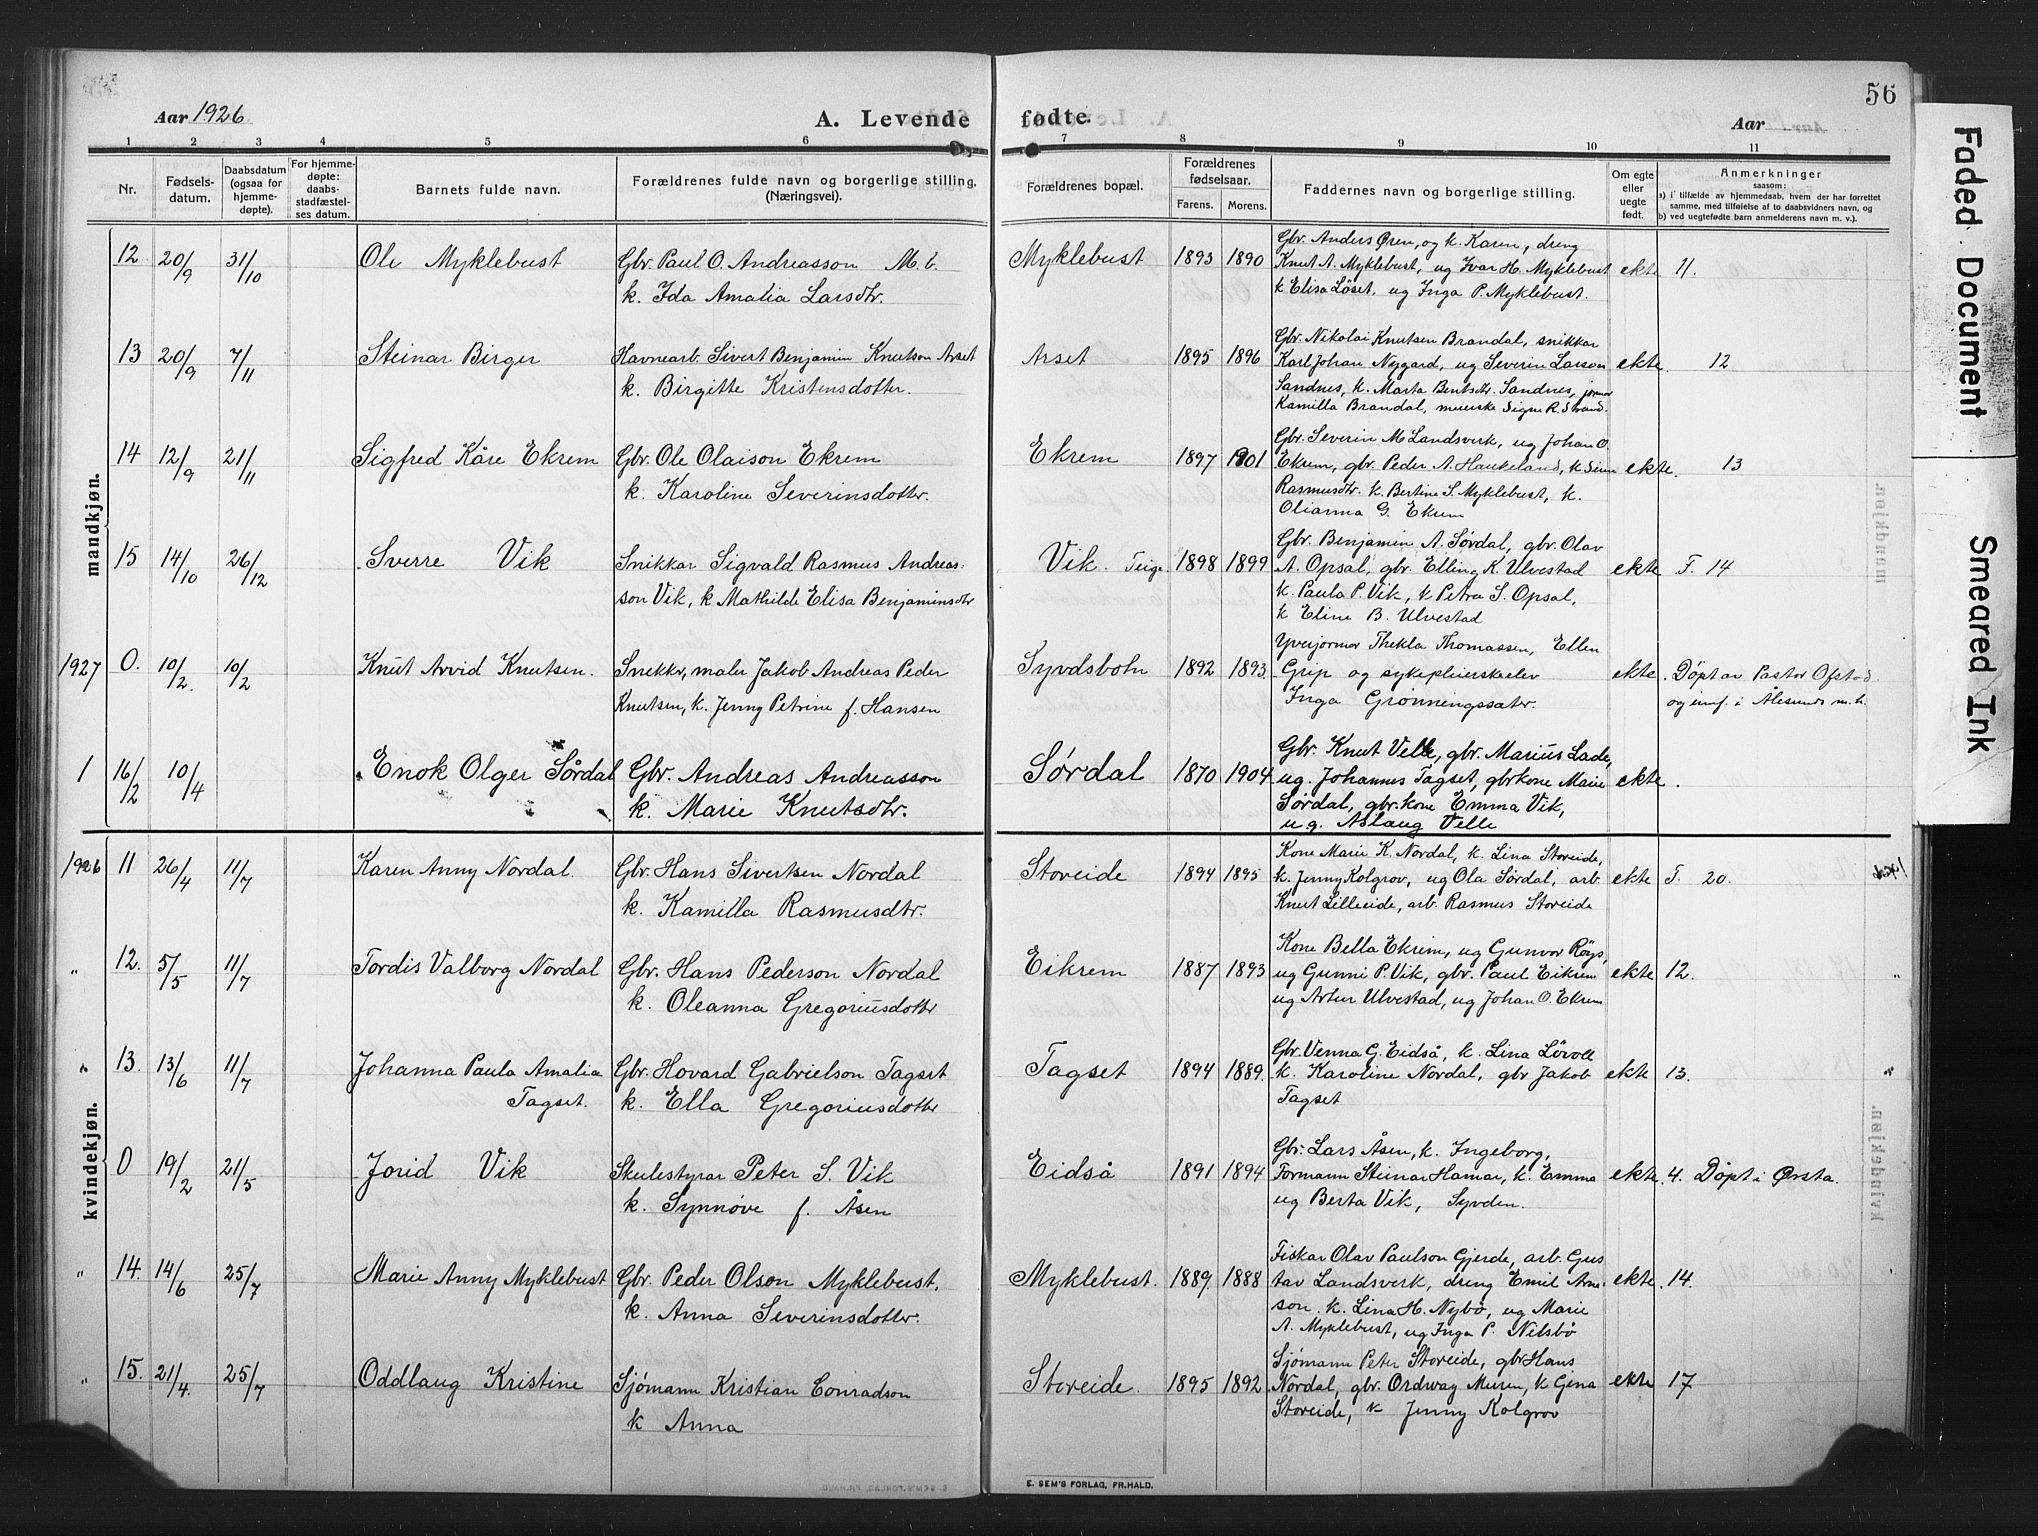 56
Aar 1926
A. Levende fødte.
Aar
1 2 3 4 5 6 7 8 9 10 11
Nr.
Fødsels-
datum.
Daabsdatum
(ogsaa for
hjemme-
døpte).
For hjemme-
døpte:
daabs-
stadfæstel-
ses datum.
Barnets fulde navn.
Forældrenes fulde navn og borgerlige stilling.
(Næringsvei).
Forældrenes bopæl.
Forældrenes
fødselsaar.
Farens. Morens.
Faddernes navn og borgerlige stilling.
Om egte
eller
uegte
født.
Anmerkninger
saasom:
a) i tilfælde av hjemmedaab, hvem der har forrettet
samme, med tilføielse af to daabsvidners navn, og
b) ved uegtefødte barn anmelderens navn m. v.).
mandkjøn.
12 20/9 31/10 Ole Myklebust Gbr. Paul O. Andreasson M.b.
k. Ida Amalia Larsdtr.
Myklebust 1893 1890
Gbr. Anders Øren, og k. Karen, dreng
Knut A. Myklebust, ug Ivar H. Myklebust
k Elisa Løset, ug Inga P. Myklebust.
ekte 11.
13 20/9 7/11 Steinar Birger Havnearb. Sivert Benjamin Knutson Arset
k. Birgitte Kristensdotter.
Arset 1895 1896
Gbr. Nikolai Knutsen Brandal, snikkar
Karl Johan Nygard, ug Severin Larson
Sandnes, k. Marta Bentsdtr. Sandnes, jomer
Kamilla Brandal, meierske Signe R. Strand.
ekte. 12
14 12/9 21/11 Sigfred Kåre Ekrem Gbr. Ole Olaison Ekrem
k. Karoline Severinsdotter.
Ekrem 1897 1901
Gbr. Severin M Landsverk, ug Johan O.
Ekrem, gbr. Peder A. Haukeland, k
Rasmusdtr. k. Bertine S. Myklebust, k.
Olianna G. Ekrem
ekte. 13
15 14/10 26/12 Sverre Vik Snikkar Sigvald Rasmus Andreas-
son Vik, k Mathilde Elisa Benjaminsdtr
Vik. Teige 1898 1899
Gbr. Benjamin A. Sørdal, gbr. Olav
A. Opsal, gbr. Elling K. Ulvestad
k. Paula P. Vik, k Petra S. Opsal,
k Eline B. Ulvestad
ekte F. 14
1927 0. 10/2. 10/2 Knut Arvid Knutsen. Snekker, maler Jakob Andreas Peder
Knutsen, k. Jenny Petrine f. Hansen
Syvdsbotn 1892 1893.
Yverjormor Thekla Thomassen, Ellen
Grip og sykepleierskeelev
Inga Grønningssæter.
ekte. Døpt av Pastor Ofstad
og innf. i Ålesunds m.b.
1 16/2 10/4 Enok Olger Sørdal Gbr. Andreas Andreasson
k. Marie Knutsdtr.
Sørdal 1870 1904
Gbr. Knut Velle, gbr. Marius Lade,
ug. Johannes Tagset, gbrkone Marie
Sørdal, gbr.kone Emma Vik,
ug. Aslaug Velle
ekte.
kvindekjøn.
1926 11 26/4 11/7 Karen Anny Nordal. Gbr. Hans Sivertsen Nordal
k. Kamilla Rasmusdtr.
Storeide 1894 1895
Kone Marie K. Nordal, k. Lina Storeide,
k. Jenny Kolgrov, ug Ola Sørdal, arb.
Knut Lilleeide, arb. Rasmus Storeide
ekte F. 20.
„ 12. 5/5 11/7 Tordis Valborg Nordal Gbr. Hans Pederson Nordal
k. Oleanna Gregoriusdotter
Eikrem 1887 1893
Kone Bella Ekrem, ug Gunvor Røys,
ug Gunni P. Vik, gbr. Paul Eikrem
ug Artur Ulvestad, ug Johan O. Ekrem
ekte 12.
„ 13. 13/6 11/7 Johanna Paula Amalia
Tagset.
Gbr. Hovard Gabrielson Tagset
k. Ella Gregoriusdotter
Tagset 1894 1889.
Gbr. Venna G. Eidså, k. Lina Løvoll
k. Karoline Nordal, gbr Jakob
Tagset
ekte 13.
0 19/2 21/5 Jorid Vik Skulestyrar Peter S. Vik
k. Synnøve f. Åsen
Eidså 1891 1894
Gbr. Lars Åsen, k. Ingeborg,
Formann Steinar Hamar, k. Emma
ug Berta Vik, Syvden.
ekte. 4. Døpt i Ørsta.
„ 14. 14/6 25/7 Marie Anny Myklebust Gbr. Peder Olson Myklebust.
k. Anna Severinsdotter.
Myklebust. 1889. 1888
Fiskar Olav Paulson Gjerde, arb. Gus
tav Landsverk, dreng Emil Arne-
son. k. Lina H. Nybø, ug Marie
A. Myklebust, ug Inga P. Nilsbø
ekte. 14.
„ 15. 21/4. 25/7 Oddlaug Kristine Sjømann Kristian Conradson
k Anna
Storeide. 1895 1892
Sjømann Peter Storeide, gbr Hans
Nordal, gbr. Ordway Muren, k Gina
Storeide, k Jenny Kolgrov
ekte 17
E. SEM'S FORLAG, FR.HALD.
Faded Document
Smeared Ink